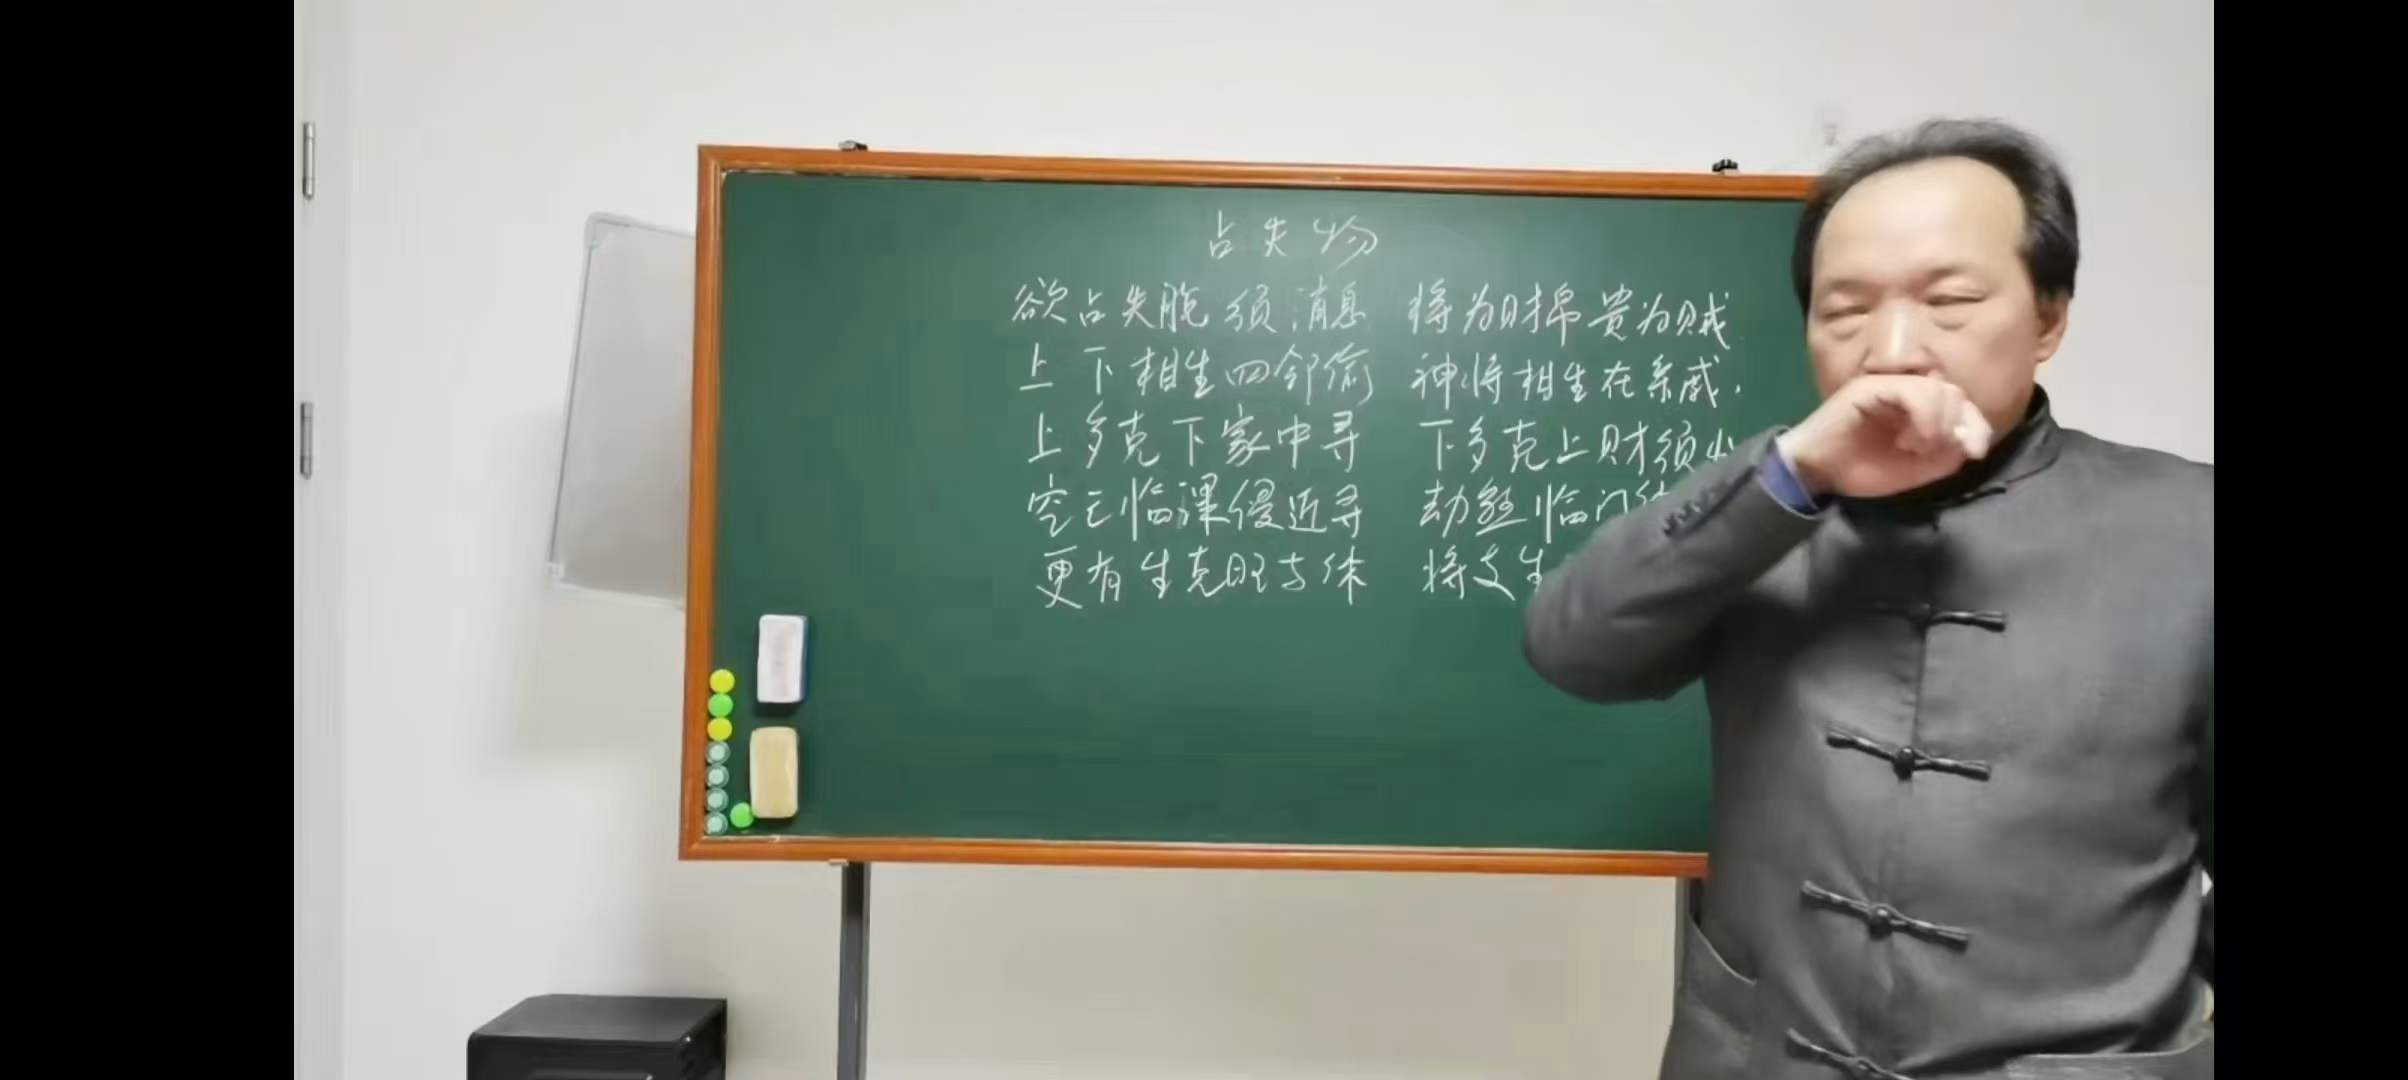 占失物
欲占失脱须消息 将为财帛贵为贼
上下相生四邻偷 神将相生在亲戚.
上多克下家中寻 下多克上财须
空亡临课侵近寻 劫煞临门
更有生克旺与休 将支生